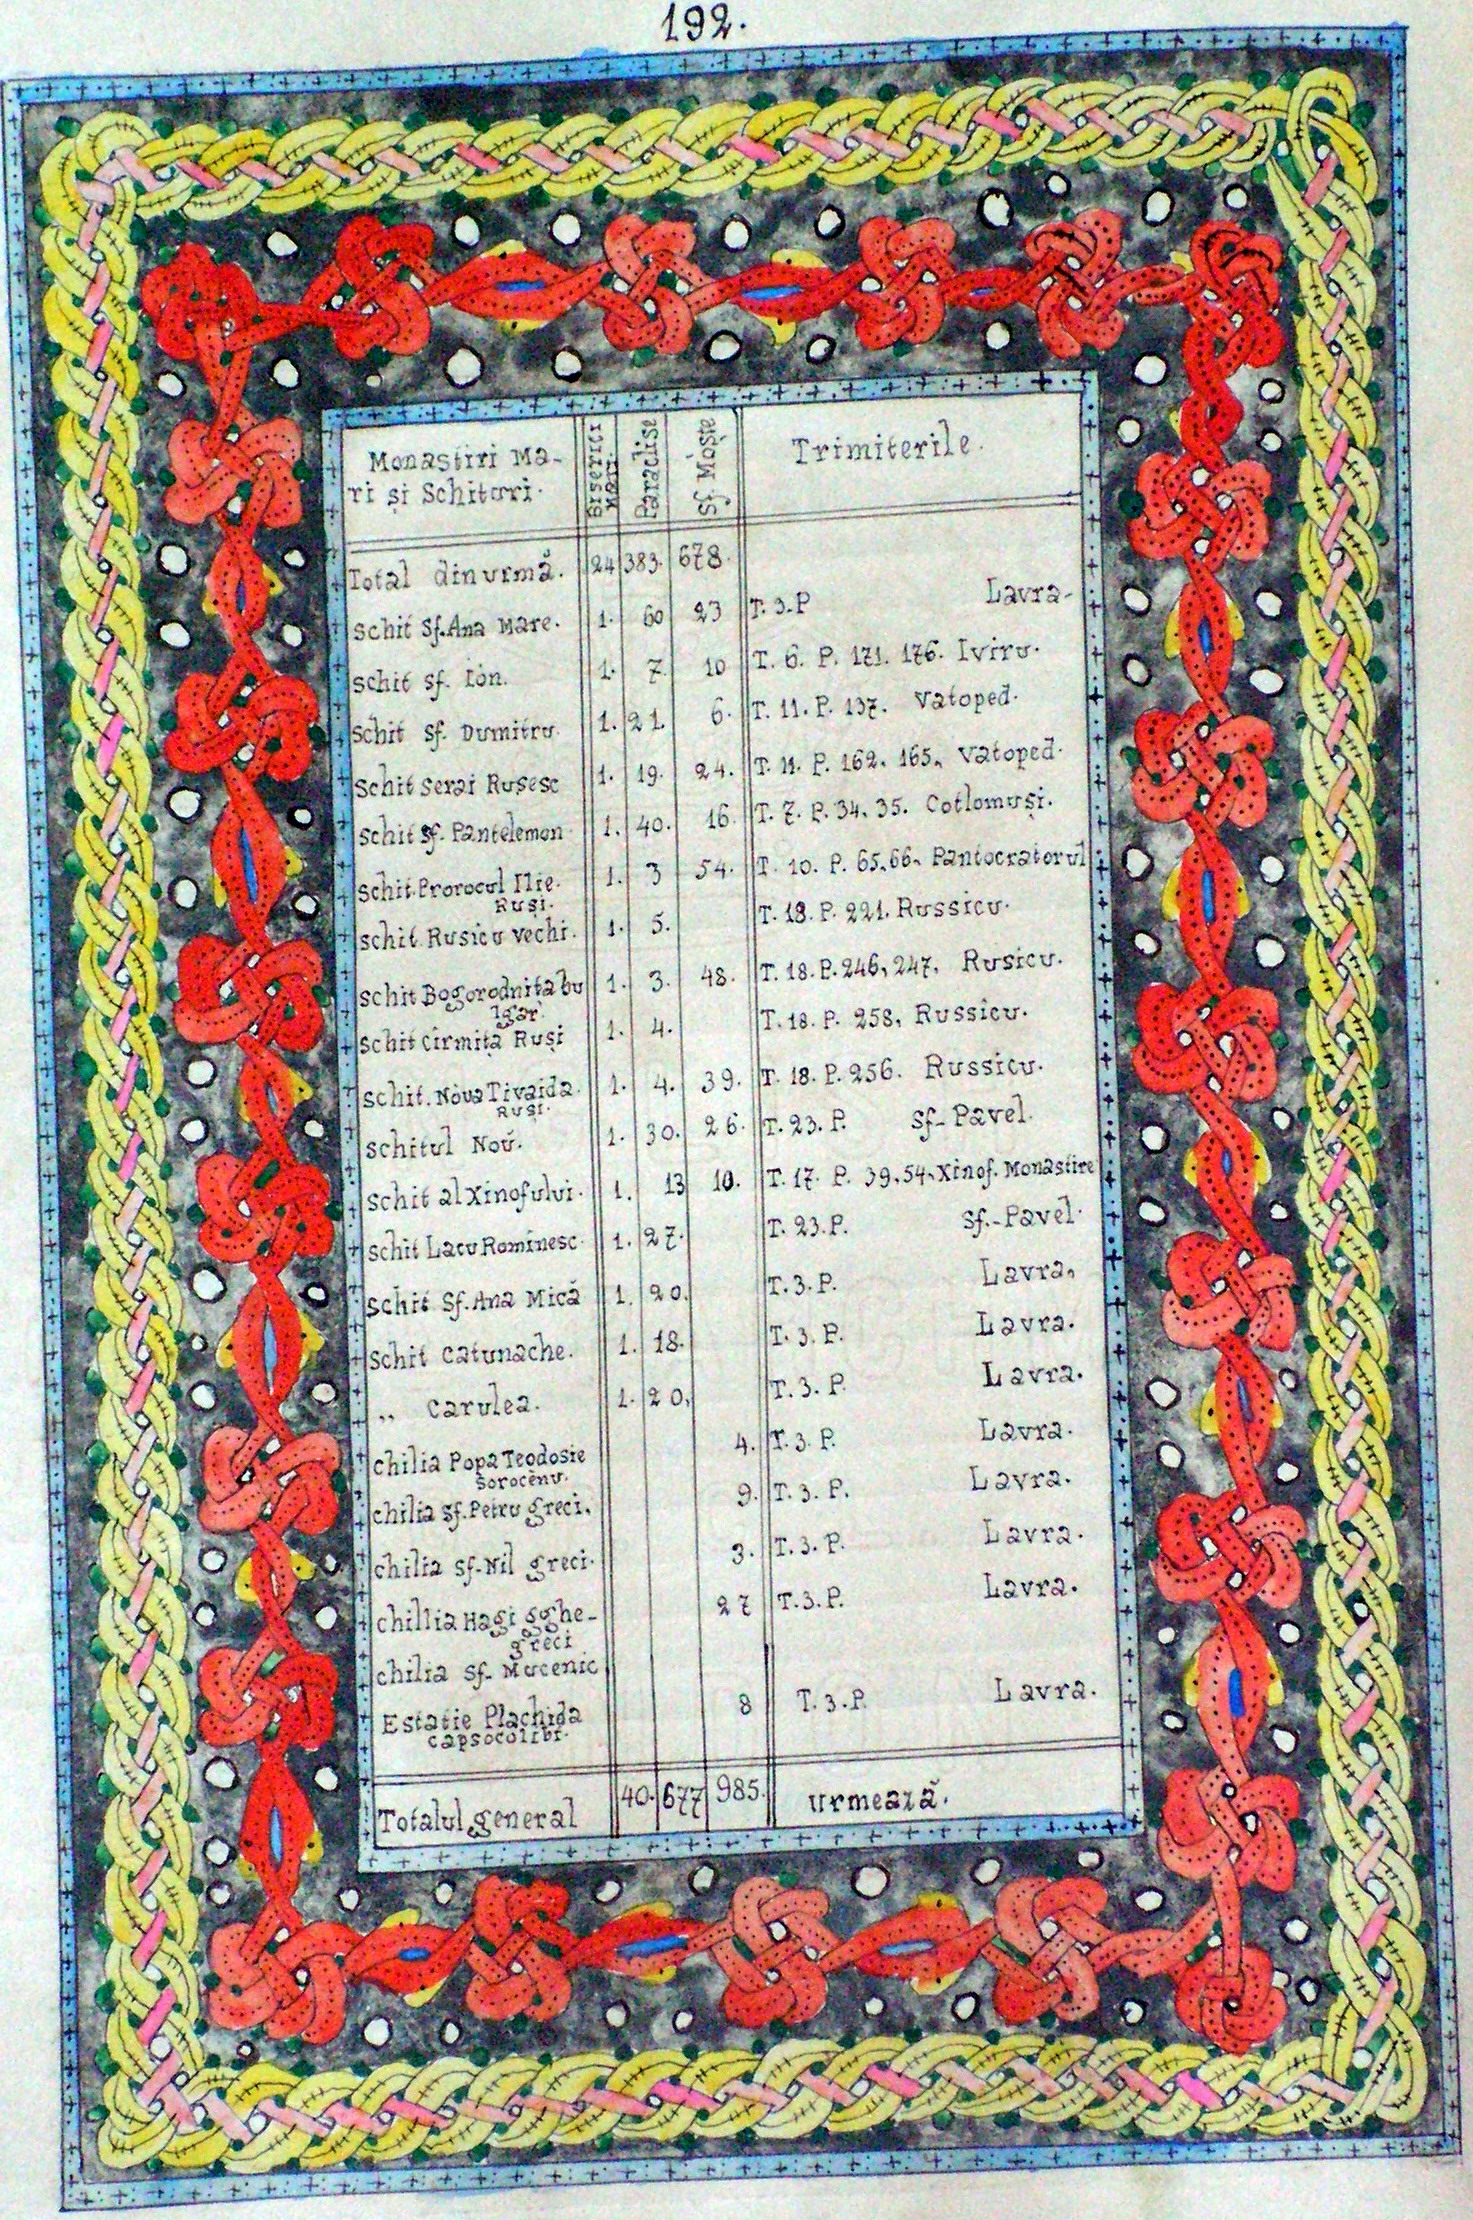 192.
Monastiri Ma-
ri și Schituri.
Biserici Mari.
Paraclise
Sf. Moște
Trimiterile.
Total din urmă. 24 383. 678.
Schit Sf. Ana Mare. 1. 60 23 T. 3. P Lavra.
Schit Sf. Ion. 1. 7. 10 T. 6. P. 171. 176. Iviru.
Schit Sf. Dumitru. 1. 21. 6. T. 11. P. 137. Vatoped.
Schit Serai Rusesc 1. 19. 24. T. 11. P. 162. 165. Vatoped.
Schit Sf. Pantelemon 1. 40. 16. T. 7. P. 34. 35. Cotlomuși.
Schit Prorocul Ilie. 1. 3 54. T. 10. P. 65. 66. Pantocratorul
Ruși.
Schit Rusicu Vechi. 1. 5. T. 18. P. 221. Russicu.
Schit Bogorodnita bu 1. 3. 48. T. 18. P. 246, 247. Rusicu.
lgar.
Schit Cirmița Ruși 1. 4. T. 18. P. 258. Russicu.
Schit. Nova Tivaida. 1. 4. 39. T. 18. P. 256. Russicu.
Ruși.
Schitul Noŭ. 1. 30. 26. T. 23. P. Sf. Pavel.
Schit al Xinofului. 1. 13 10. T. 17. P. 39. 54. Xinof. Monastire
Schit Lacu Rominesc. 1. 27. T. 23. P. Sf. Pavel.
Schit Sf. Ana Mică 1. 20. T. 3. P. Lavra.
Schit Catunache. 1. 18. T. 3. P. Lavra.
„ Carulea. 1. 20. T. 3. P. Lavra.
Chilia Popa Teodosie 4. T. 3. P. Lavra.
Sorocenu.
Chilia Sf. Petru greci. 9. T. 3. P. Lavra.
Chilia Sf. Nil greci. 3. T. 3. P. Lavra.
Chillia Hagi gghe- 27 T. 3. P. Lavra.
greci
Chilia Sf. Mucenic
Estatie Plachida 8 T. 3. P. Lavra.
Capsocolibi.
Totalul general 40. 677 985. urmează.